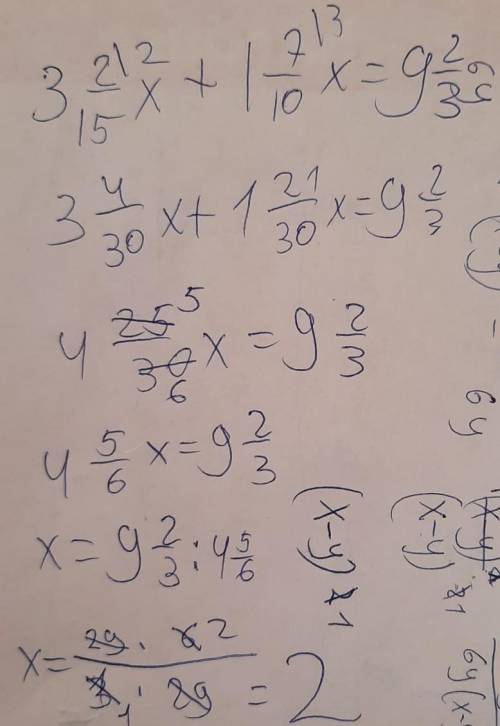 3 2/15 |2 x + 1 7/10 |3 x = 9 2/3
3 4/30 x + 1 21/30 x = 9 2/3
4 25/30 5/6 x = 9 2/3
4 5/6 x = 9 2/3
x = 9 2/3 : 4 5/6
x = 29 · 6 2 / 3 1 · 29 = 2
6y
6y
(x-y)
(x-y)
6y(x-